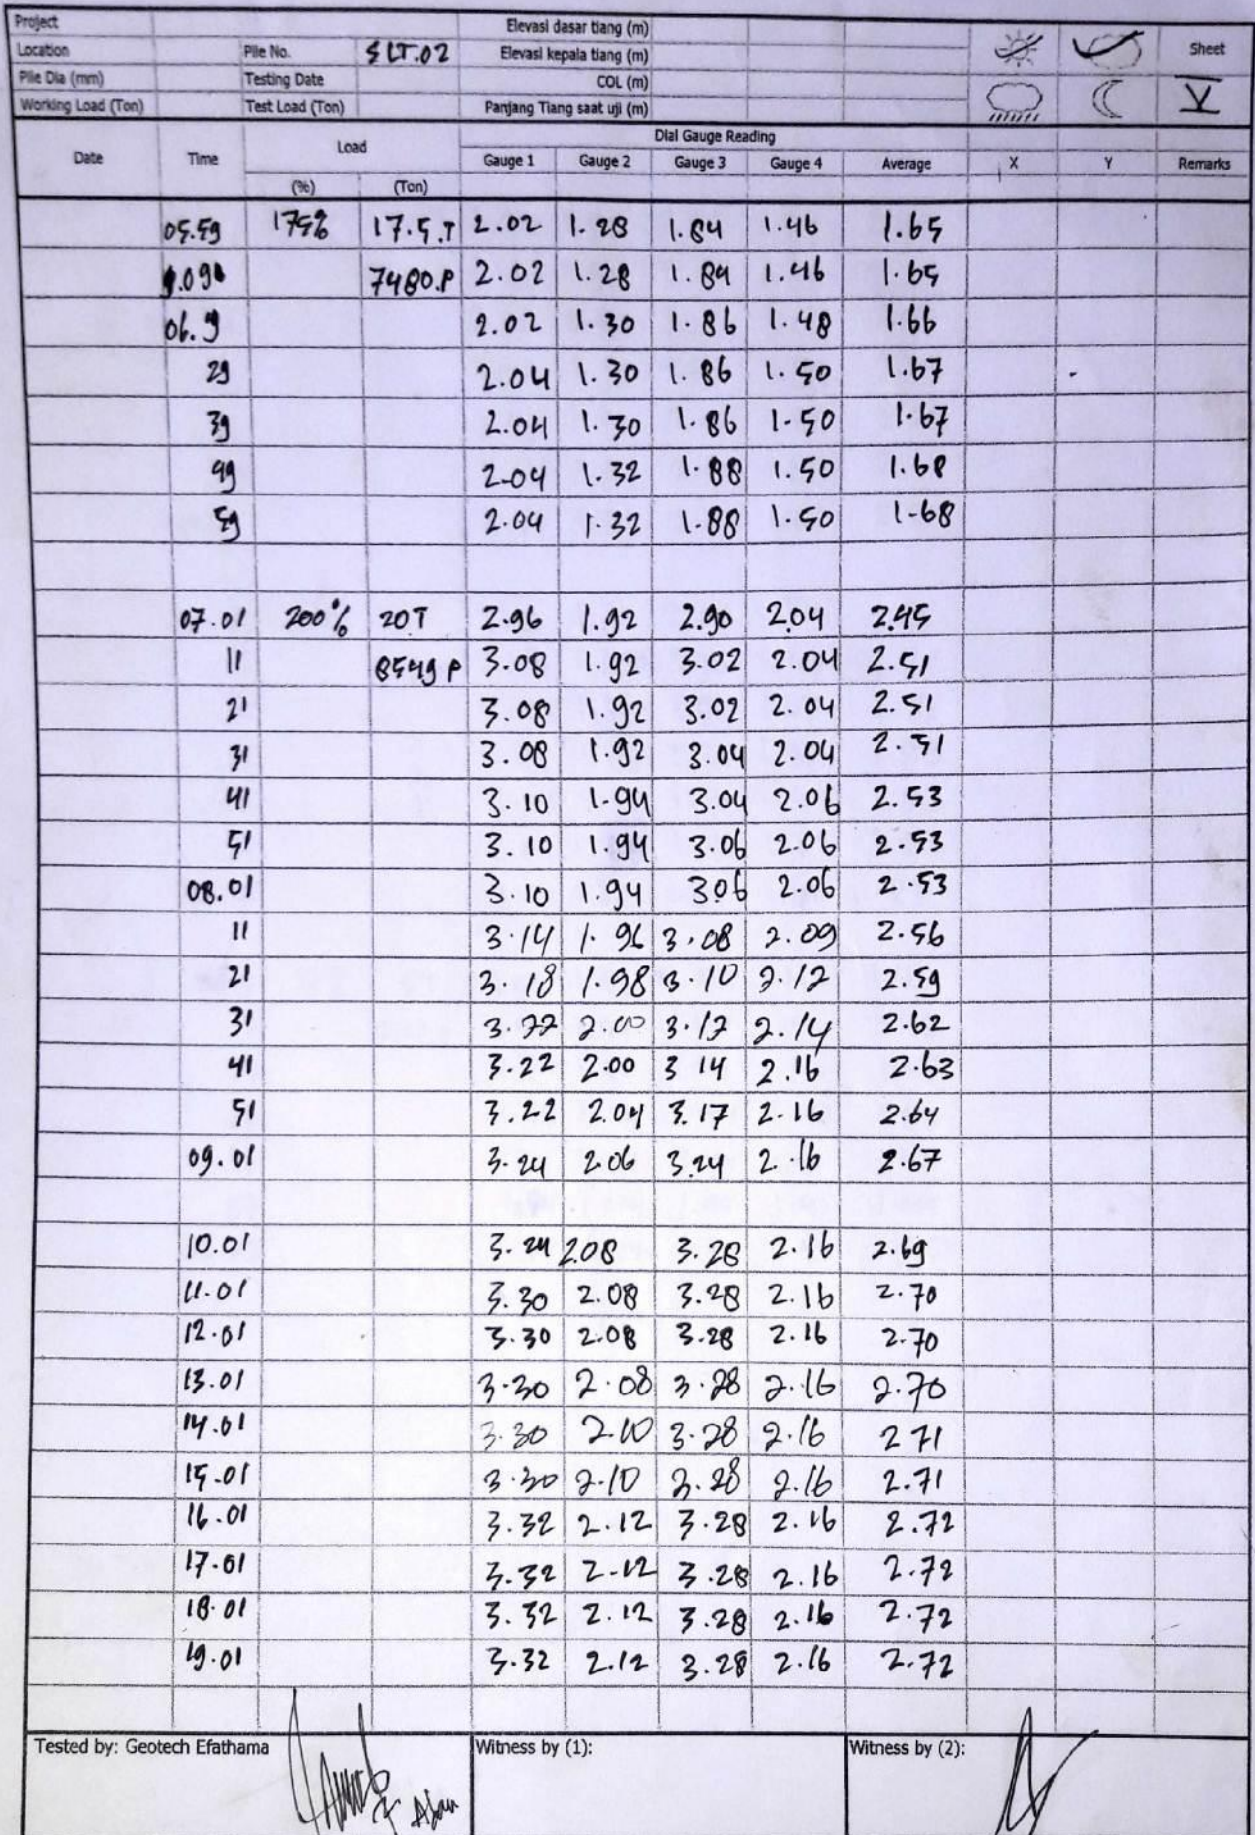 Project Elevasi dasar tiang (m)
Location Pile No. SLT.02 Elevasi kepala tiang (m) Sheet
Pile Dia (mm) Testing Date COL (m)
Working Load (Ton) Test Load (Ton) Panjang Tiang saat uji (m) V
Date Time Load Dial Gauge Reading
Gauge 1 Gauge 2 Gauge 3 Gauge 4 Average X Y Remarks
(%) (Ton)
05.59 175% 17.5.T 2.02 1.28 1.84 1.46 1.65
7480.P 2.02 1.28 1.84 1.46 1.65
06.9 2.02 1.30 1.86 1.48 1.66
29 2.04 1.30 1.86 1.50 1.67
39 2.04 1.30 1.86 1.50 1.67
49 2.04 1.32 1.88 1.50 1.68
59 2.04 1.32 1.88 1.50 1.68
07.01 200% 20T 2.96 1.92 2.90 2.04 2.45
11 8549 P 3.08 1.92 3.02 2.04 2.51
21 3.08 1.92 3.02 2.04 2.51
31 3.08 1.92 3.04 2.04 2.51
41 3.10 1.94 3.04 2.06 2.53
51 3.10 1.94 3.06 2.06 2.53
08.01 3.10 1.94 3.06 2.06 2.53
11 3.14 1.96 3.08 2.09 2.56
21 3.18 1.98 3.10 2.12 2.59
31 3.22 2.00 3.12 2.14 2.62
41 3.22 2.00 3 14 2.16 2.63
51 3.22 2.04 3.17 2.16 2.64
09.01 3.24 2.06 3.24 2.16 2.67
10.01 3.24 2.08 3.28 2.16 2.69
11.01 3.30 2.08 3.28 2.16 2.70
12.01 3.30 2.08 3.28 2.16 2.70
13.01 3.30 2.08 3.28 2.16 2.70
14.01 3.30 2.10 3.28 2.16 2 71
15.01 3.30 2.10 3.28 2.16 2.71
16.01 3.32 2.12 3.28 2.16 2.72
17.01 3.32 2.12 3.28 2.16 2.72
18.01 3.32 2.12 3.28 2.16 2.72
19.01 3.32 2.12 3.28 2.16 2.72
Tested by: Geotech Efathama Witness by (1): Witness by (2):